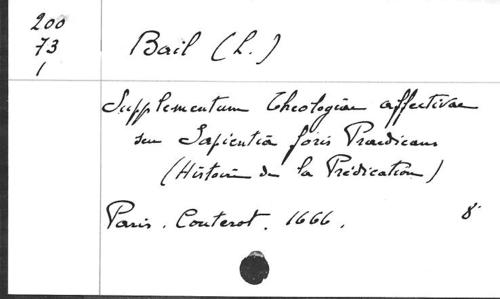 200
73
1
Bail (L.)
Supplementum Theologiae affectivae
seu Sapientia foris Praedicans
(Histoire de la Prédication)
Paris. Couterot. 1666. 8°